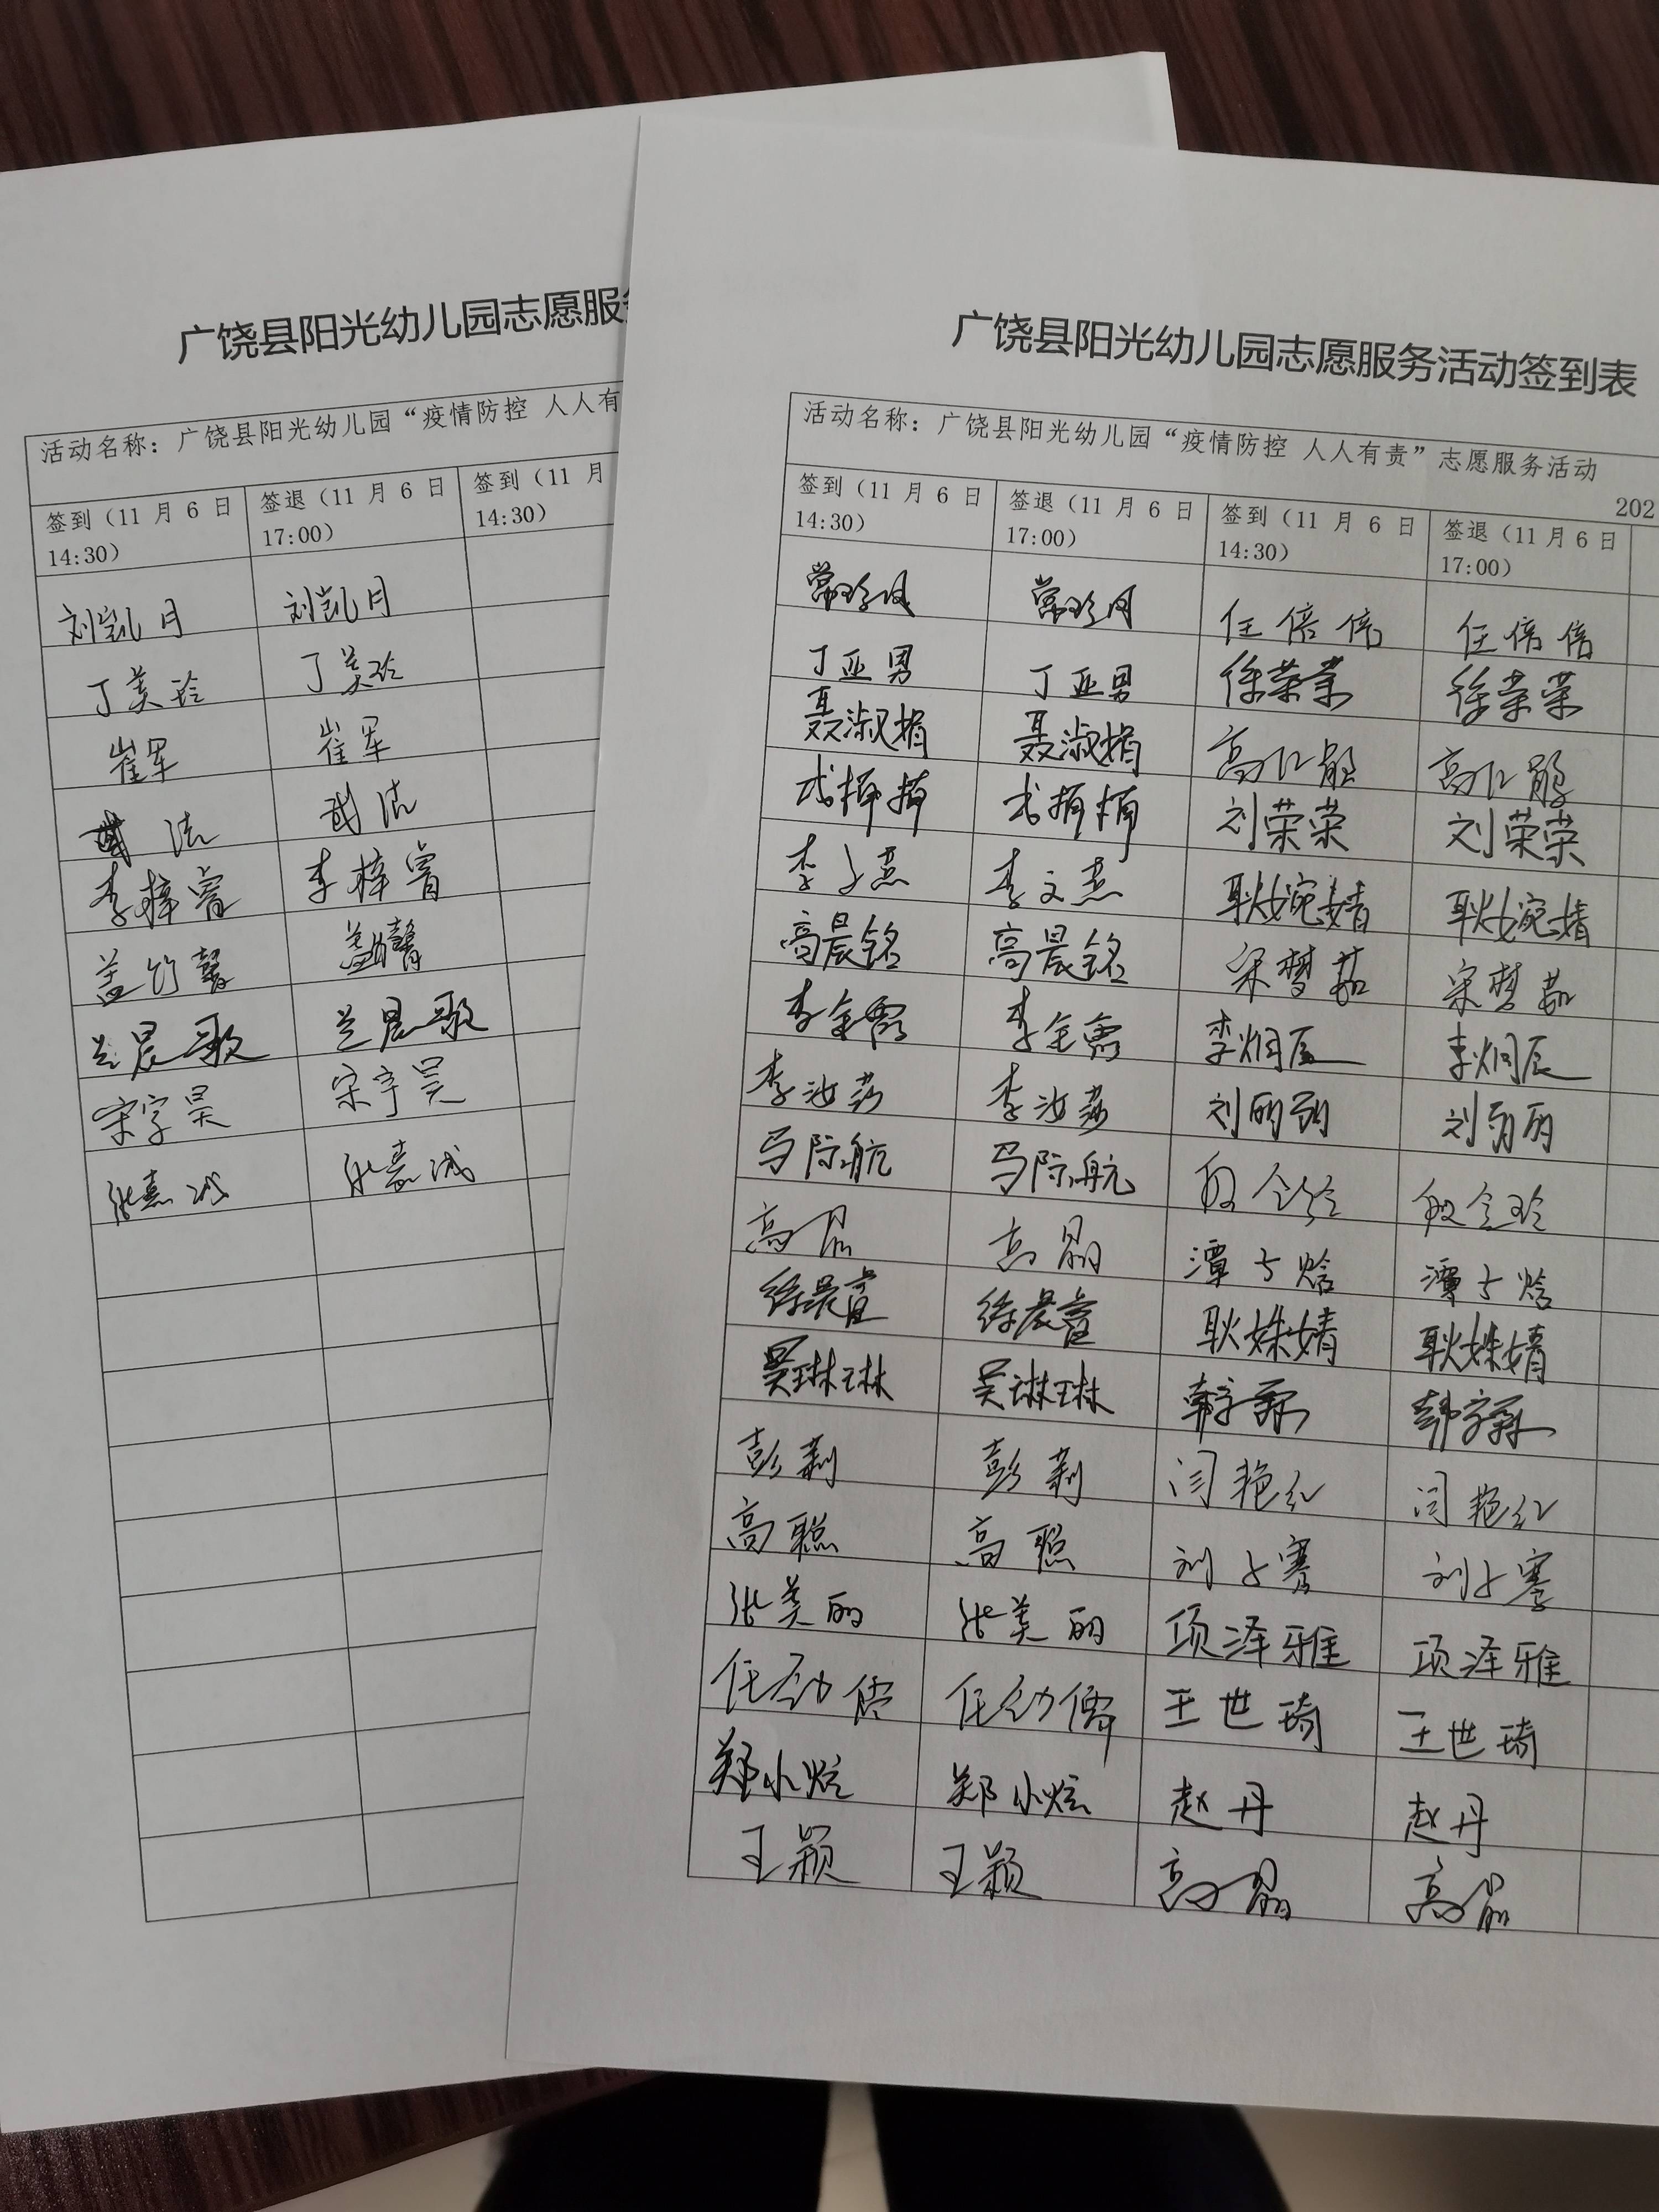 广饶县阳光幼儿园志愿服
活动名称：广饶县阳光幼儿园“疫情防控 人人有
签到（11 月 6 日 签退（11 月 6 日 签到（11 月
14:30） 17:00） 14:30）
刘凯月 刘凯月
丁美玲 丁美玲
崔军 崔军
武洁 武洁
李梓睿 李梓睿
盖竹馨 盖竹馨
兰晨歌 兰晨歌
宋宇昊 宋宇昊
张嘉诚 张嘉诚
广饶县阳光幼儿园志愿服务活动签到表
活动名称：广饶县阳光幼儿园“疫情防控 人人有责”志愿服务活动
202
签到（11 月 6 日 签退（11 月 6 日 签到（11 月 6 日 签退（11 月 6 日
14:30） 17:00） 14:30） 17:00）
常玲凤 常玲凤 任倍倍 任倍倍
丁亚男 丁亚男 徐荣荣 徐荣荣
聂淑娟 聂淑娟
刘荣荣 刘荣荣
李文燕 李文燕 耿婉婧 耿婉婧
高晨铭 高晨铭 宋梦茹 宋梦茹
李金霞 李金霞 李炯辰 李炯辰
李汝莎 李汝莎 刘丽丽 刘丽丽
马际航 马际航
高晶 高晶
徐晨萱 徐晨萱 耿姝婧 耿姝婧
吴琳琳 吴琳琳 韩字霖 韩字霖
彭莉 彭莉 闫艳红 闫艳红
高聪 高聪 刘子骞 刘子骞
张美丽 张美丽 项泽雅 项泽雅
王世琦 王世琦
郑小炫 郑小炫 赵丹 赵丹
王颖 王颖 高晶 高晶